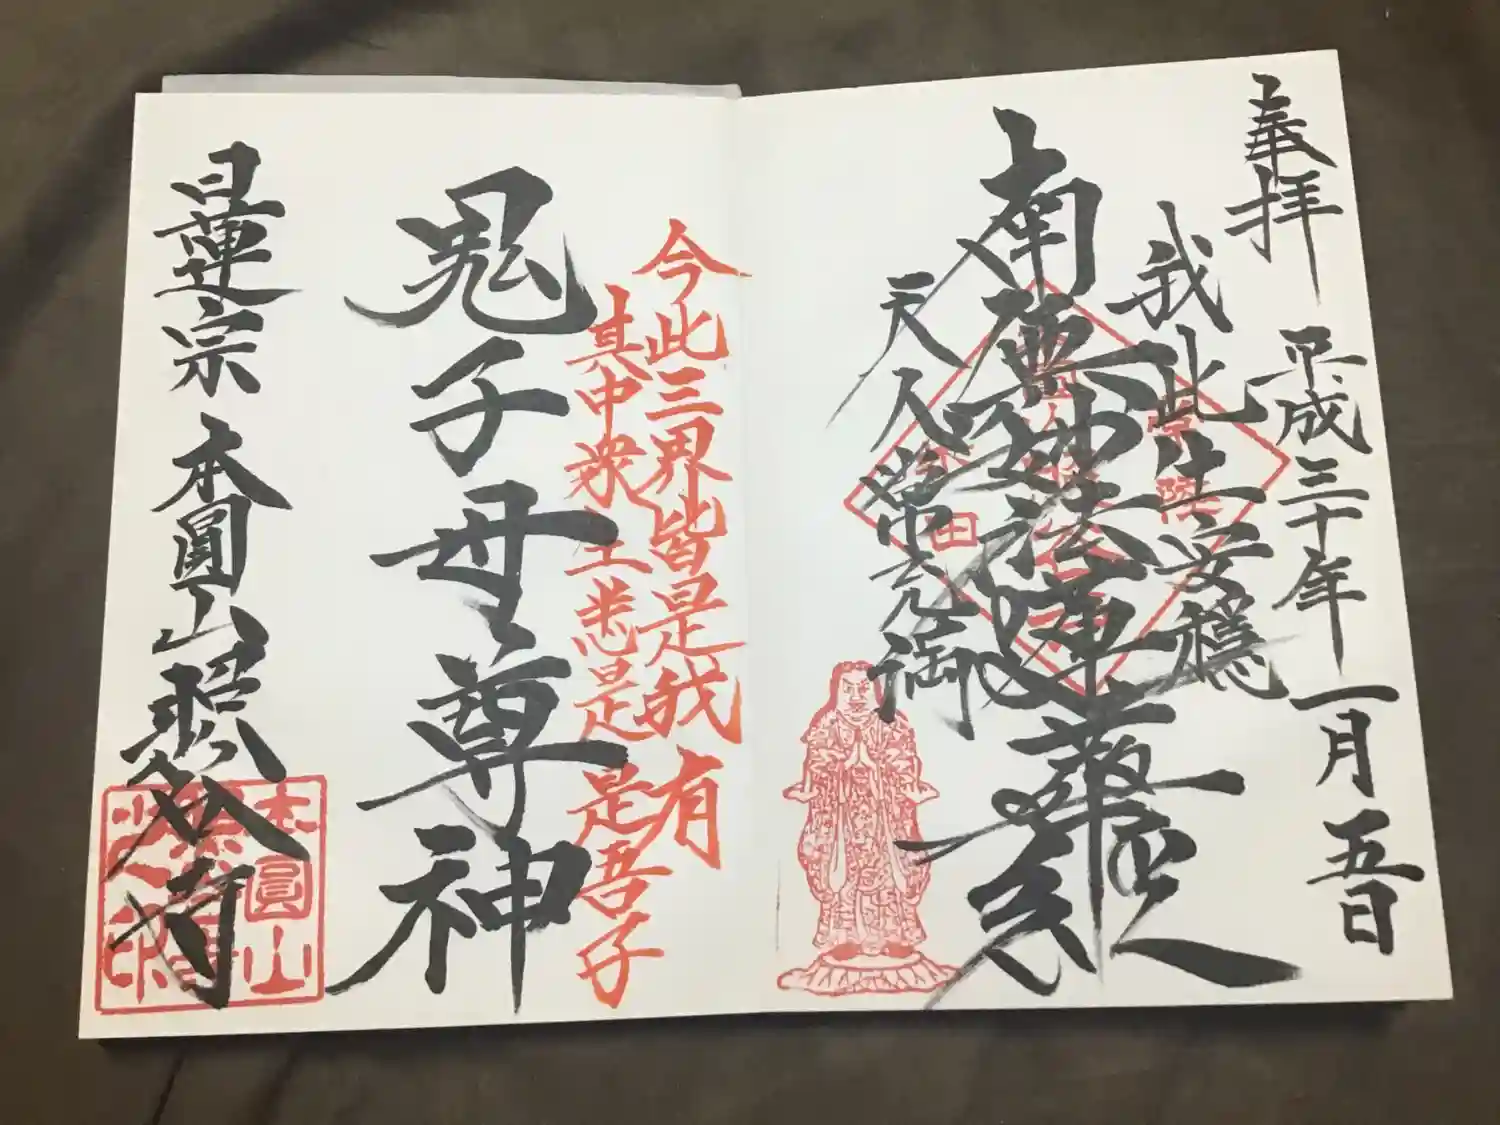 奉拝 平成三十年一月五日
我此土安穏
南無妙法蓮華経
天人常充満
今此三界皆是我有
其中衆生悉是吾子
鬼子母尊神
日蓮宗 本圓山 照谷寺
本圓山
之印